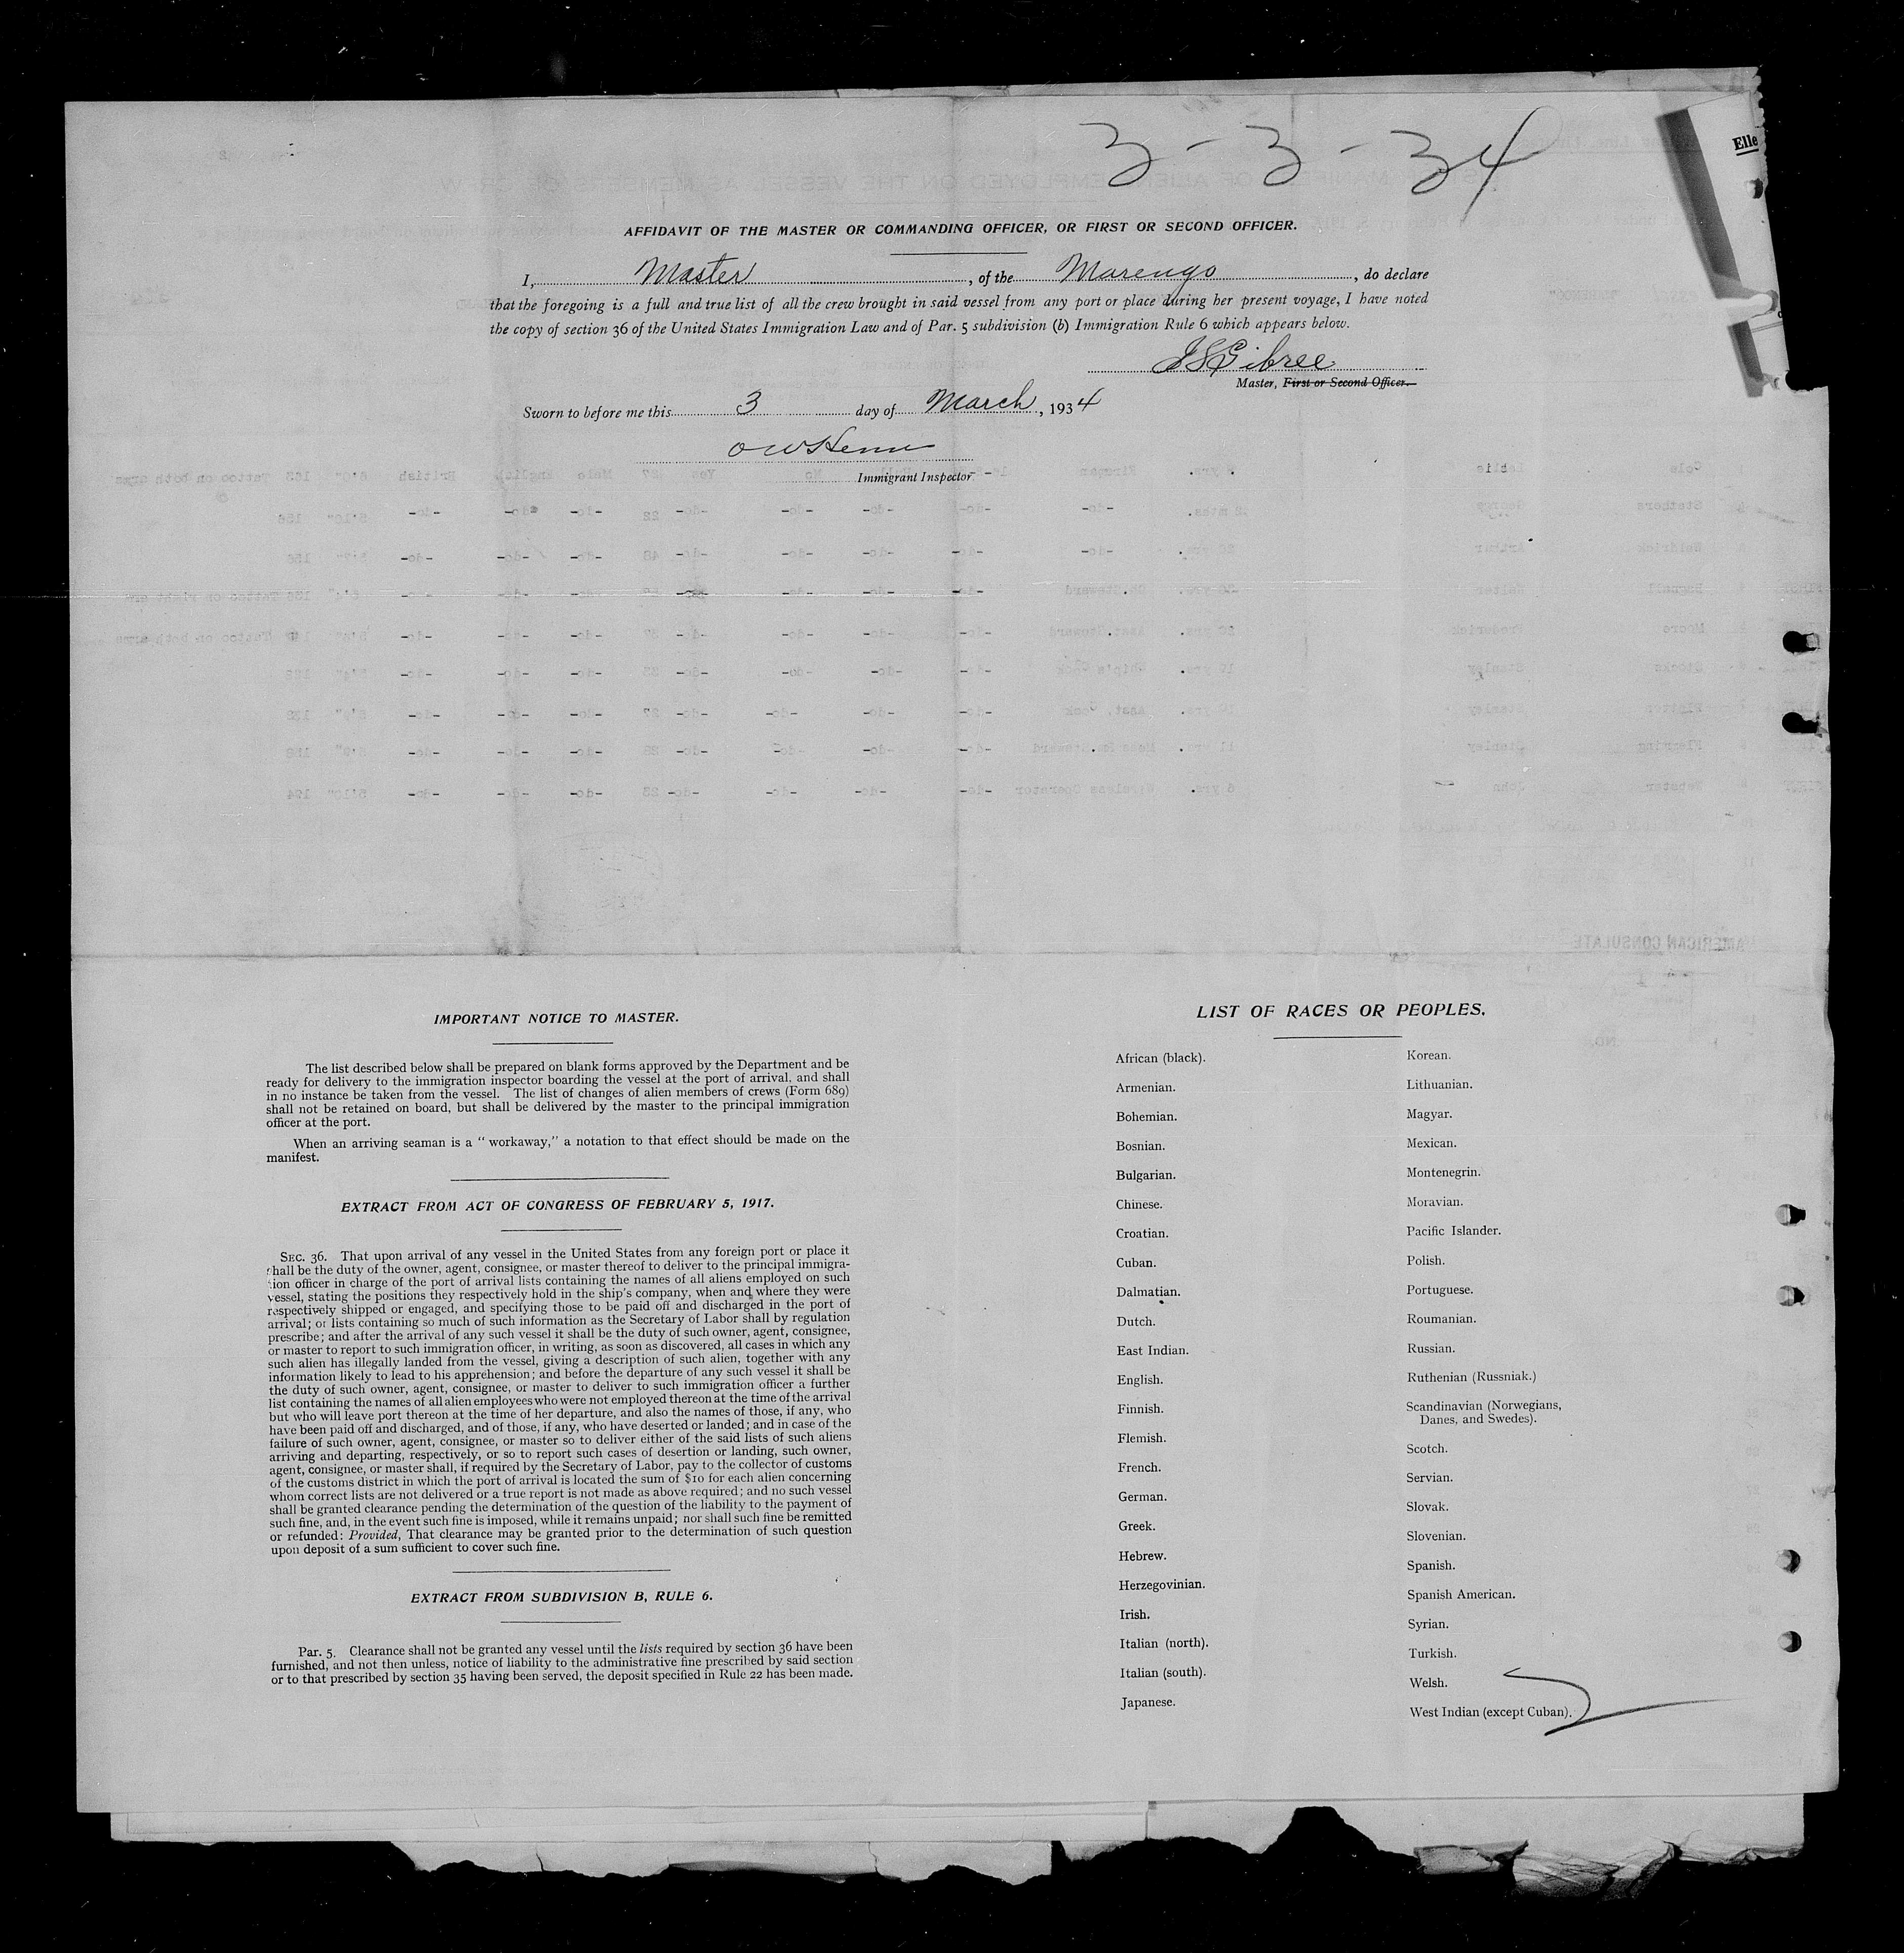 3-3-34
Elle
AFFIDAVIT OF THE MASTER OR COMMANDING OFFICER, OR FIRST OR SECOND OFFICER.
I, Master, of the Marengo, do declare
that the foregoing is a full and true list of all the crew brought in said vessel from any port or place during her present voyage, I have noted
the copy of section 36 of the United States Immigration Law and of Par. 5 subdivision (b) Immigration Rule 6 which appears below.
Master, First or Second Officer.
Sworn to before me this 3 day of March, 1934
Immigrant Inspector
AMERICAN CONSULATE
IMPORTANT NOTICE TO MASTER.
The list described below shall be prepared on blank forms approved by the Department and be
ready for delivery to the immigration inspector boarding the vessel at the port of arrival, and shall
in no instance be taken from the vessel. The list of changes of alien members of crews (Form 689)
shall not be retained on board, but shall be delivered by the master to the principal immigration
officer at the port.
When an arriving seaman is a " workaway," a notation to that effect should be made on the
manifest.
EXTRACT FROM ACT OF CONGRESS OF FEBRUARY 5, 1917.
SEC. 36. That upon arrival of any vessel in the United States from any foreign port or place it
shall be the duty of the owner, agent, consignee, or master thereof to deliver to the principal immigra-
tion officer in charge of the port of arrival lists containing the names of all aliens employed on such
vessel, stating the positions they respectively hold in the ship's company, when and where they were
respectively shipped or engaged, and specifying those to be paid off and discharged in the port of
arrival; or lists containing so much of such information as the Secretary of Labor shall by regulation
prescribe; and after the arrival of any such vessel it shall be the duty of such owner, agent, consignee,
or master to report to such immigration officer, in writing, as soon as discovered, all cases in which any
such alien has illegally landed from the vessel, giving a description of such alien, together with any
information likely to lead to his apprehension; and before the departure of any such vessel it shall be
the duty of such owner, agent, consignee, or master to deliver to such immigration officer a further
list containing the names of all alien employees who were not employed thereon at the time of the arrival
but who will leave port thereon at the time of her departure, and also the names of those, if any, who
have been paid off and discharged, and of those, if any, who have deserted or landed; and in case of the
failure of such owner, agent, consignee, or master so to deliver either of the said lists of such aliens
arriving and departing, respectively, or so to report such cases of desertion or landing, such owner,
agent, consignee, or master shall, if required by the Secretary of Labor, pay to the collector of customs
of the customs district in which the port of arrival is located the sum of $10 for each alien concerning
whom correct lists are not delivered or a true report is not made as above required; and no such vessel
shall be granted clearance pending the determination of the question of the liability to the payment of
such fine, and, in the event such fine is imposed, while it remains unpaid; nor shall such fine be remitted
or refunded: Provided, That clearance may be granted prior to the determination of such question
upon deposit of a sum sufficient to cover such fine.
EXTRACT FROM SUBDIVISION B, RULE 6.
Par. 5. Clearance shall not be granted any vessel until the lists required by section 36 have been
furnished, and not then unless, notice of liability to the administrative fine prescribed by said section
or to that prescribed by section 35 having been served, the deposit specified in Rule 22 has been made.
LIST OF RACES OR PEOPLES.
African (black).
Armenian.
Bohemian.
Bosnian.
Bulgarian.
Chinese.
Croatian.
Cuban.
Dalmatian.
Dutch.
East Indian.
English.
Finnish.
Flemish.
French.
German.
Greek.
Hebrew.
Herzegovinian.
Irish.
Italian (north).
Italian (south).
Japanese.
Korean.
Lithuanian.
Magyar.
Mexican.
Montenegrin.
Moravian.
Pacific Islander.
Polish.
Portuguese.
Roumanian.
Russian.
Ruthenian (Russniak.)
Scandinavian (Norwegians,
Danes, and Swedes).
Scotch.
Servian.
Slovak.
Slovenian.
Spanish.
Spanish American.
Syrian.
Turkish.
Welsh.
West Indian (except Cuban).